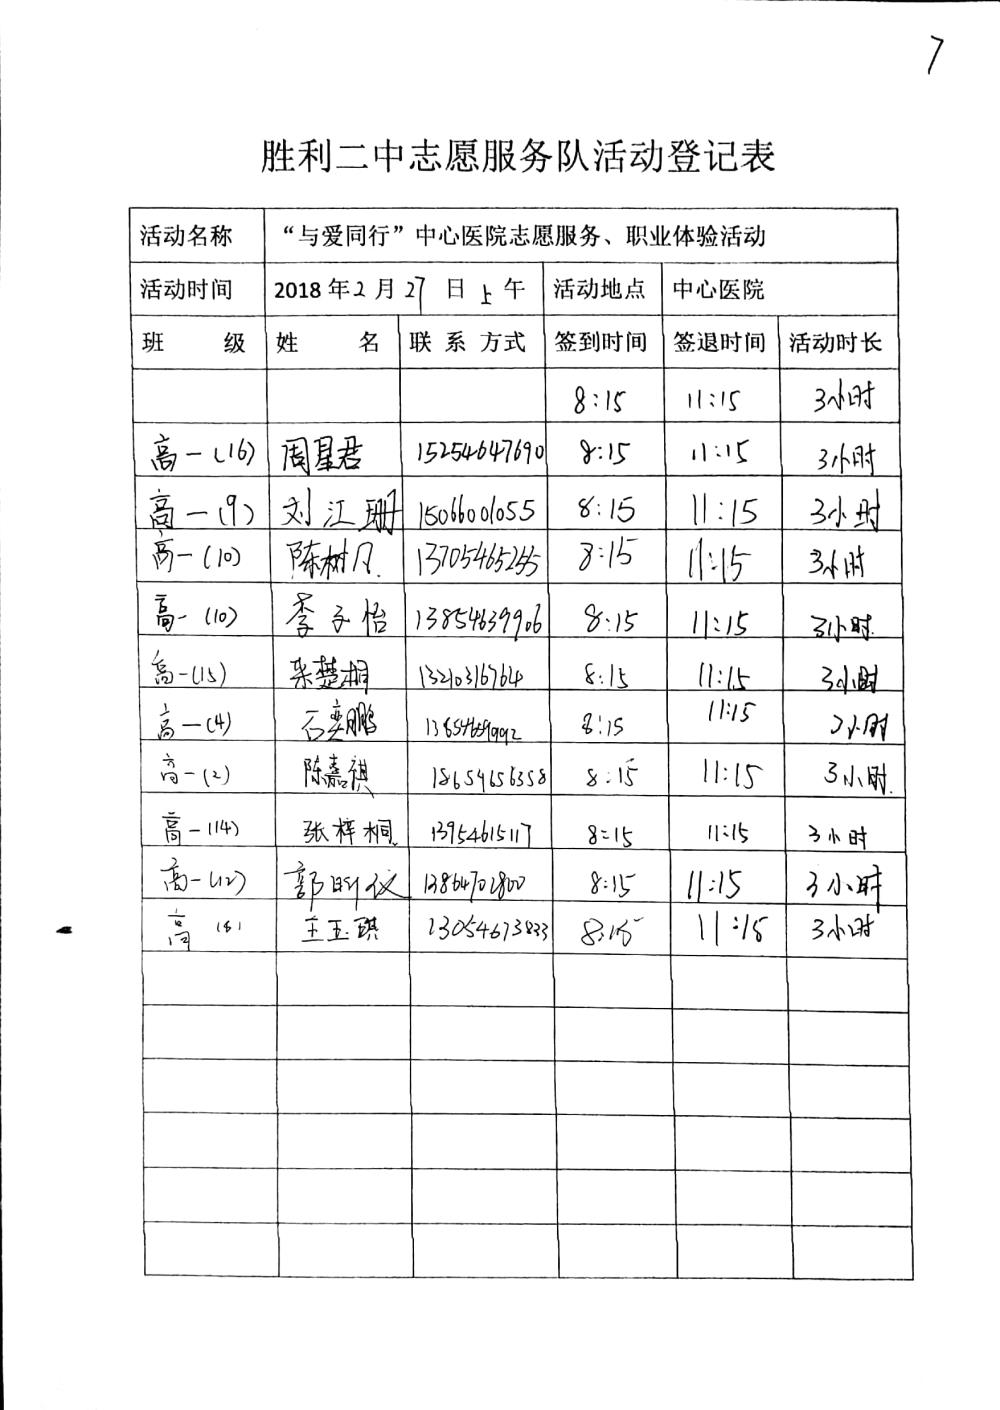 7
胜利二中志愿服务队活动登记表
活动名称 “与爱同行”中心医院志愿服务、职业体验活动
活动时间 2018年2月27日上午 活动地点 中心医院
班 级 姓 名 联系方式 签到时间 签退时间 活动时长
8:15 11:15 3小时
高一(16) 周星君 15254647690 8:15 11:15 3小时
高一(9) 刘江珊 15066001055 8:15 11:15 3小时
高一(10) 陈树凡 13705465255 8:15 11:15 3小时
高一(10) 李子怡 13854639906 8:15 11:15 3小时
高一(15) 张楚桐 13210316764 8:15 11:15 3小时
高一(4) 石奕鹏 8:15 11:15 3小时
高一(2) 陈嘉祺 18654656358 8:15 11:15 3小时
高一(14) 张梓桐 13954615117 8:15 11:15 3小时
高一(12) 郭昕仪 13864701800 8:15 11:15 3小时
高 王玉琪 13054673833 8:15 11:15 3小时